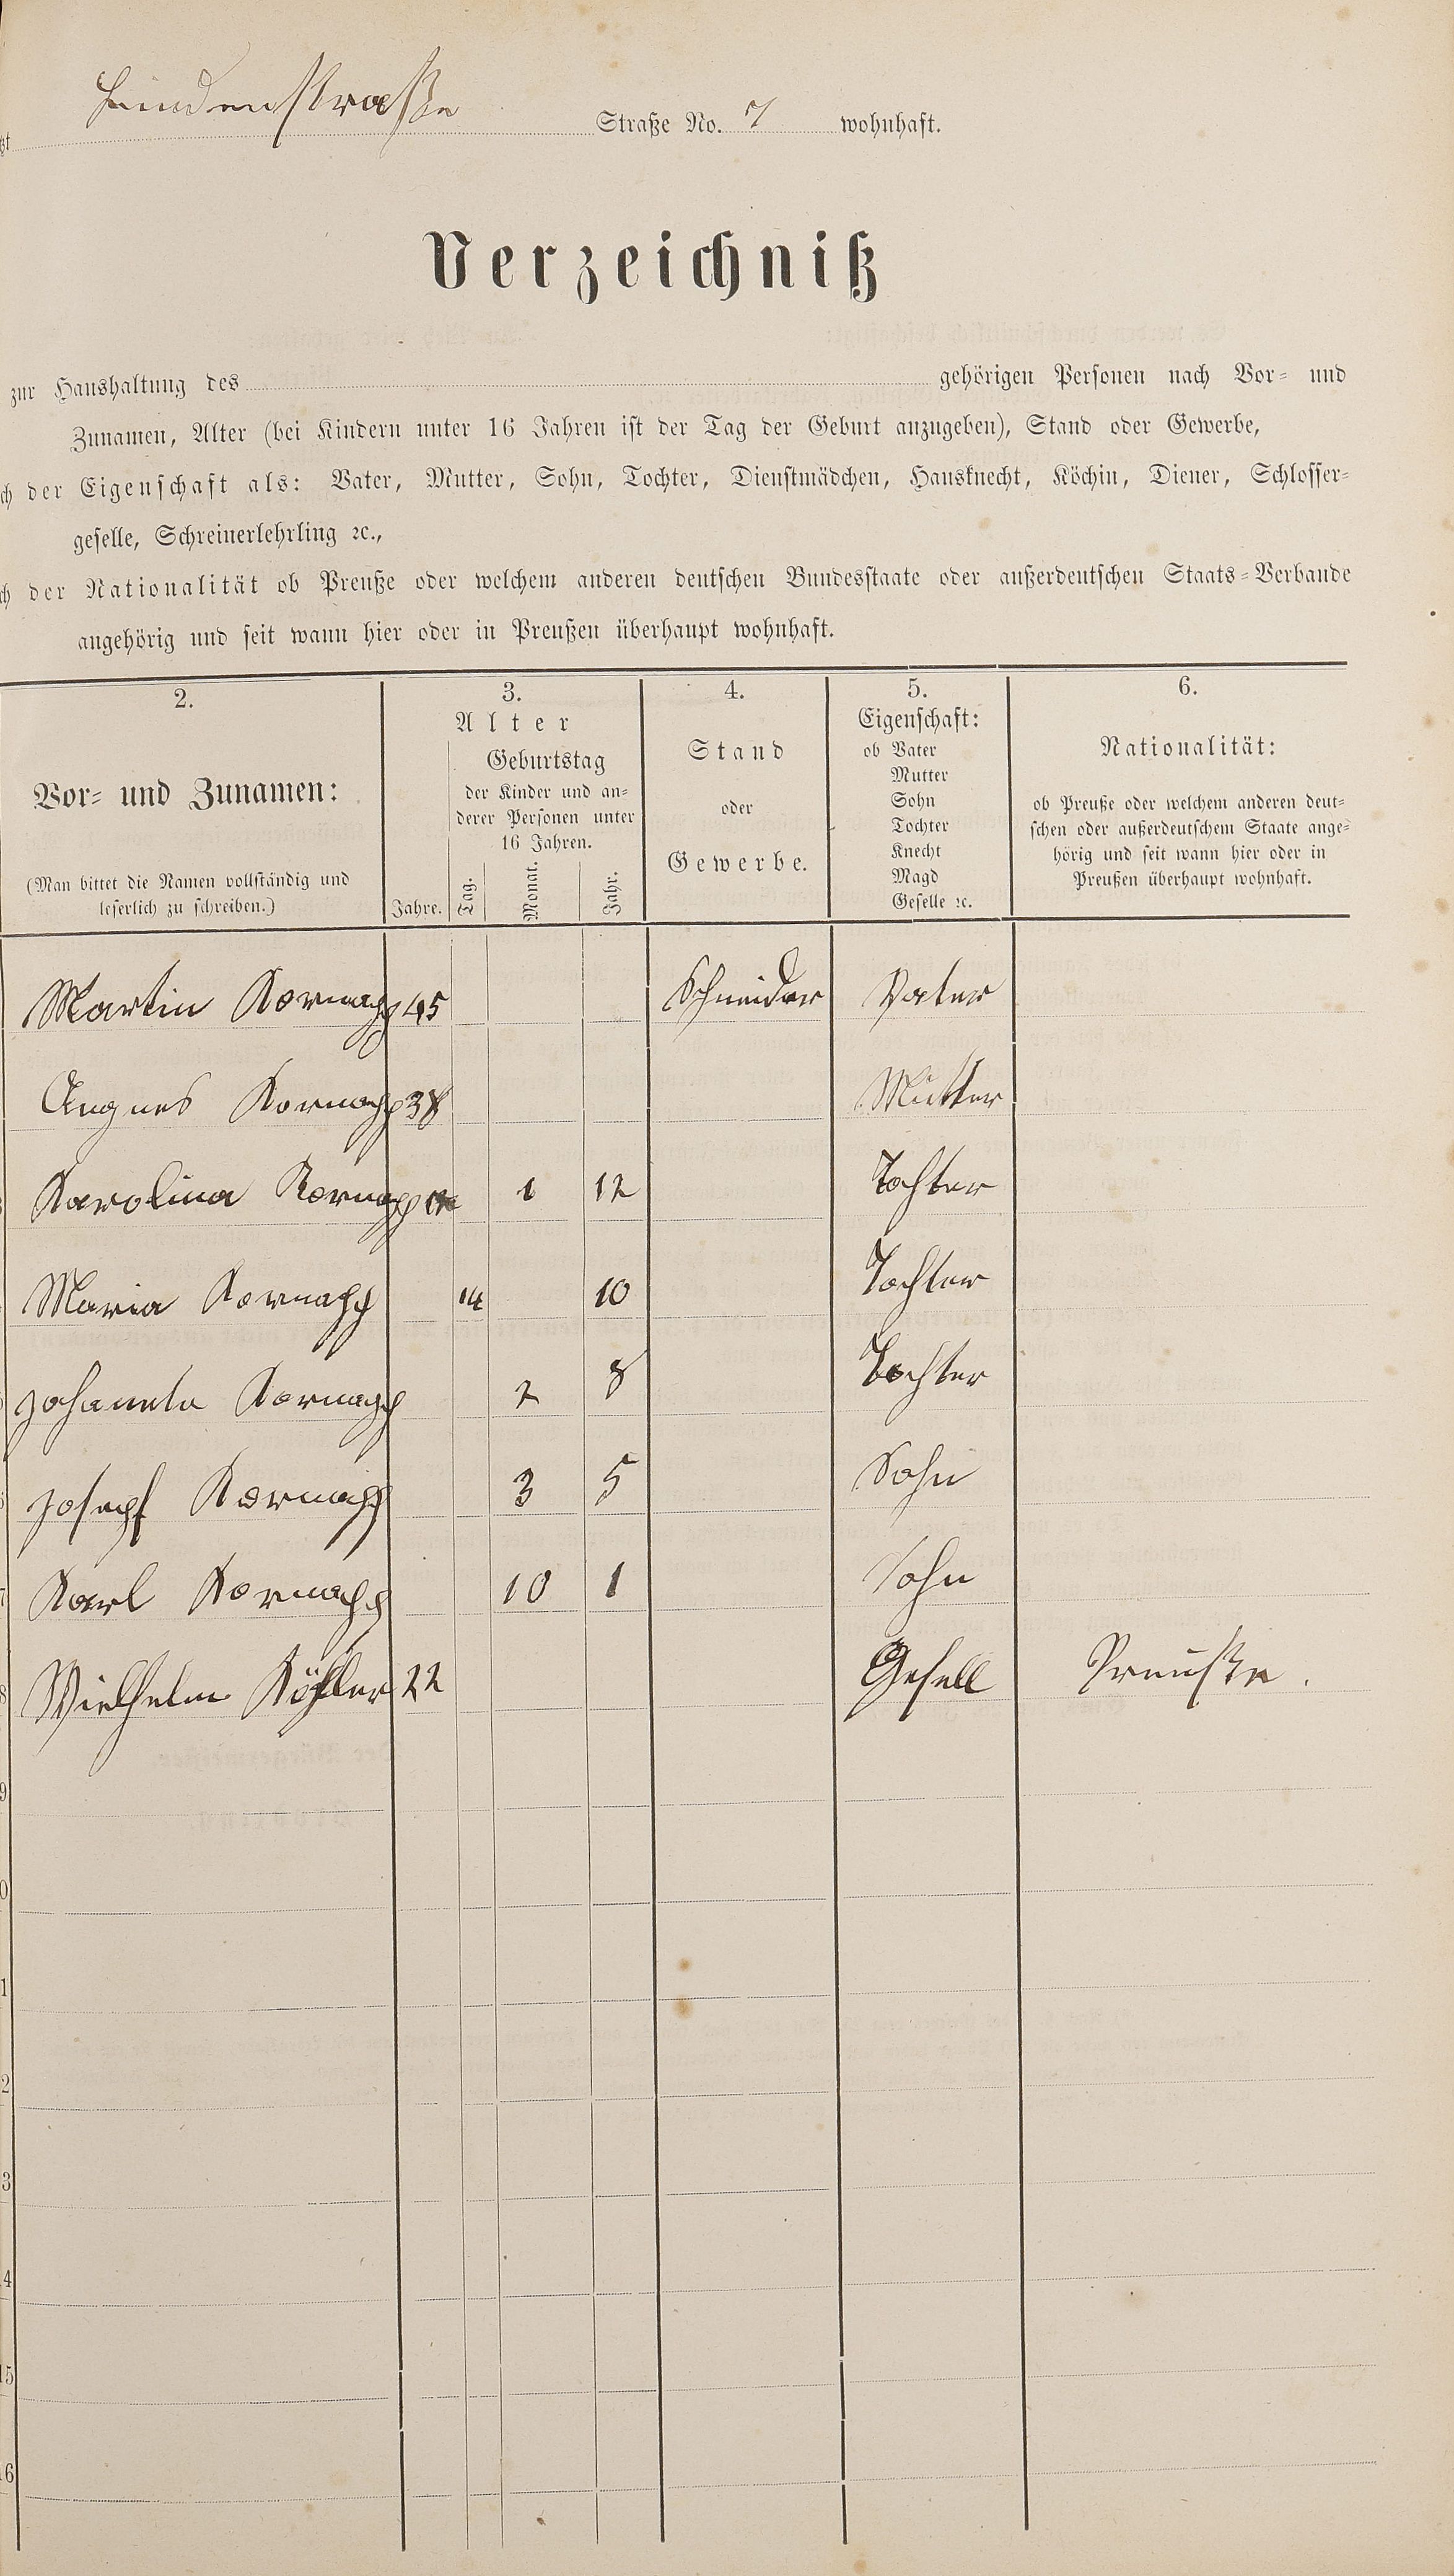 Lindenstraße Straße No. 7 wohnhaft.
Verzeichniß
zur Haushaltung des gehörigen Personen nach Vor- und
Zunamen, Alter (bei Kindern unter 16 Jahren ist der Tag der Geburt anzugeben), Stand oder Gewerbe,
der Eigenschaft als: Vater, Mutter, Sohn, Tochter, Dienstmädchen, Hausknecht, Köchin, Diener, Schlosser-
geselle, Schreinerlehrling ꝛc.,
der Nationalität ob Preuße oder welchem anderen deutschen Bundesstaate oder außerdeutschen Staats-Verbande
angehörig und seit wann hier oder in Preußen überhaupt wohnhaft.
2. 3. 4. 5. 6.
Vor- und Zunamen:
(Man bittet die Namen vollständig und
leserlich zu schreiben.)
Alter
Jahre.
Geburtstag
der Kinder und an-
derer Personen unter
16 Jahren.
Tag. Monat. Jahr.
Stand
oder
Gewerbe.
Eigenschaft:
ob Vater
Mutter
Sohn
Tochter
Knecht
Magd
Geselle ꝛc.
Nationalität:
ob Preuße oder welchem anderen deut-
schen oder außerdeutschem Staate ange-
hörig und seit wann hier oder in
Preußen überhaupt wohnhaft.
Martin Kornapp 45 Schneider Vater
Angnes Kornapp 38 Mutter
Karolina Kornapp 1 12 Tochter
Maria Kornapp 14 10 Tochter
Kornapp 2 8 Tochter
Josepf Kornapp 3 5 Sohn
Karl Kornapp 10 1 Sohn
Wielhelm Köhler 22 Gesell Preuße.